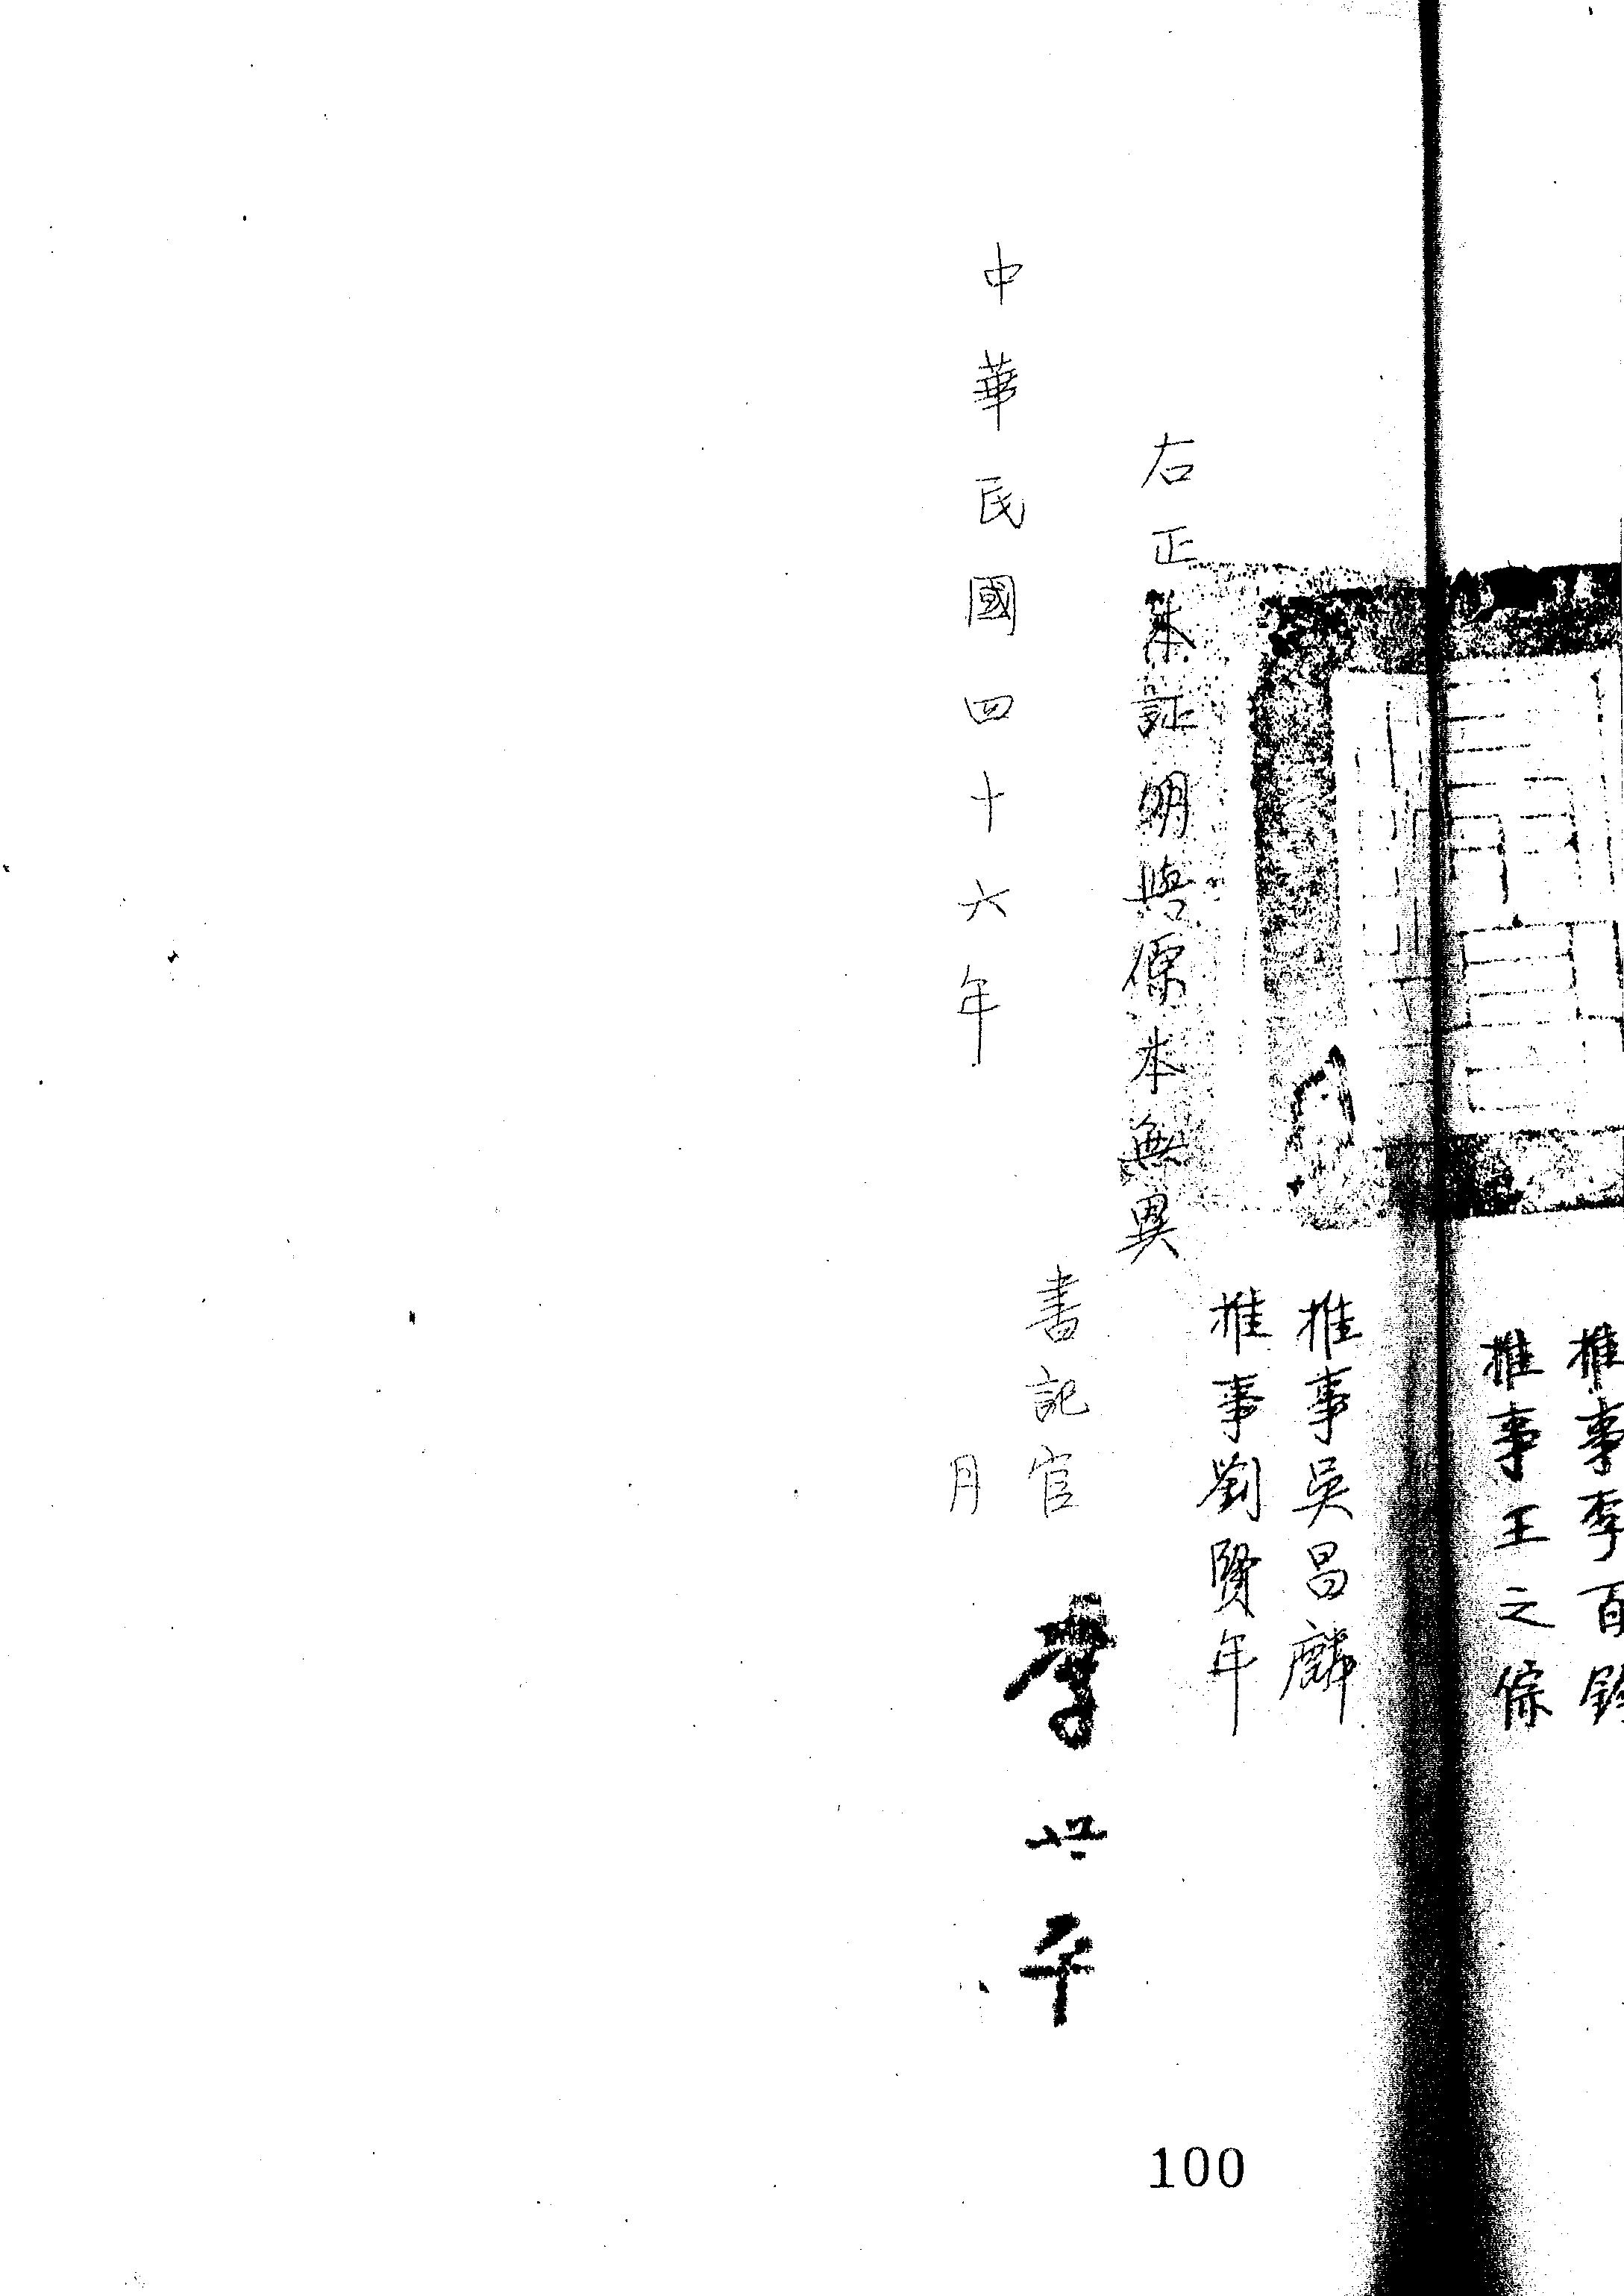 推事李百
推事王之倧
推事吳昌麟
推事劉賢年
右正本証明與原本無異
書記官
中華民國四十六年 月
100